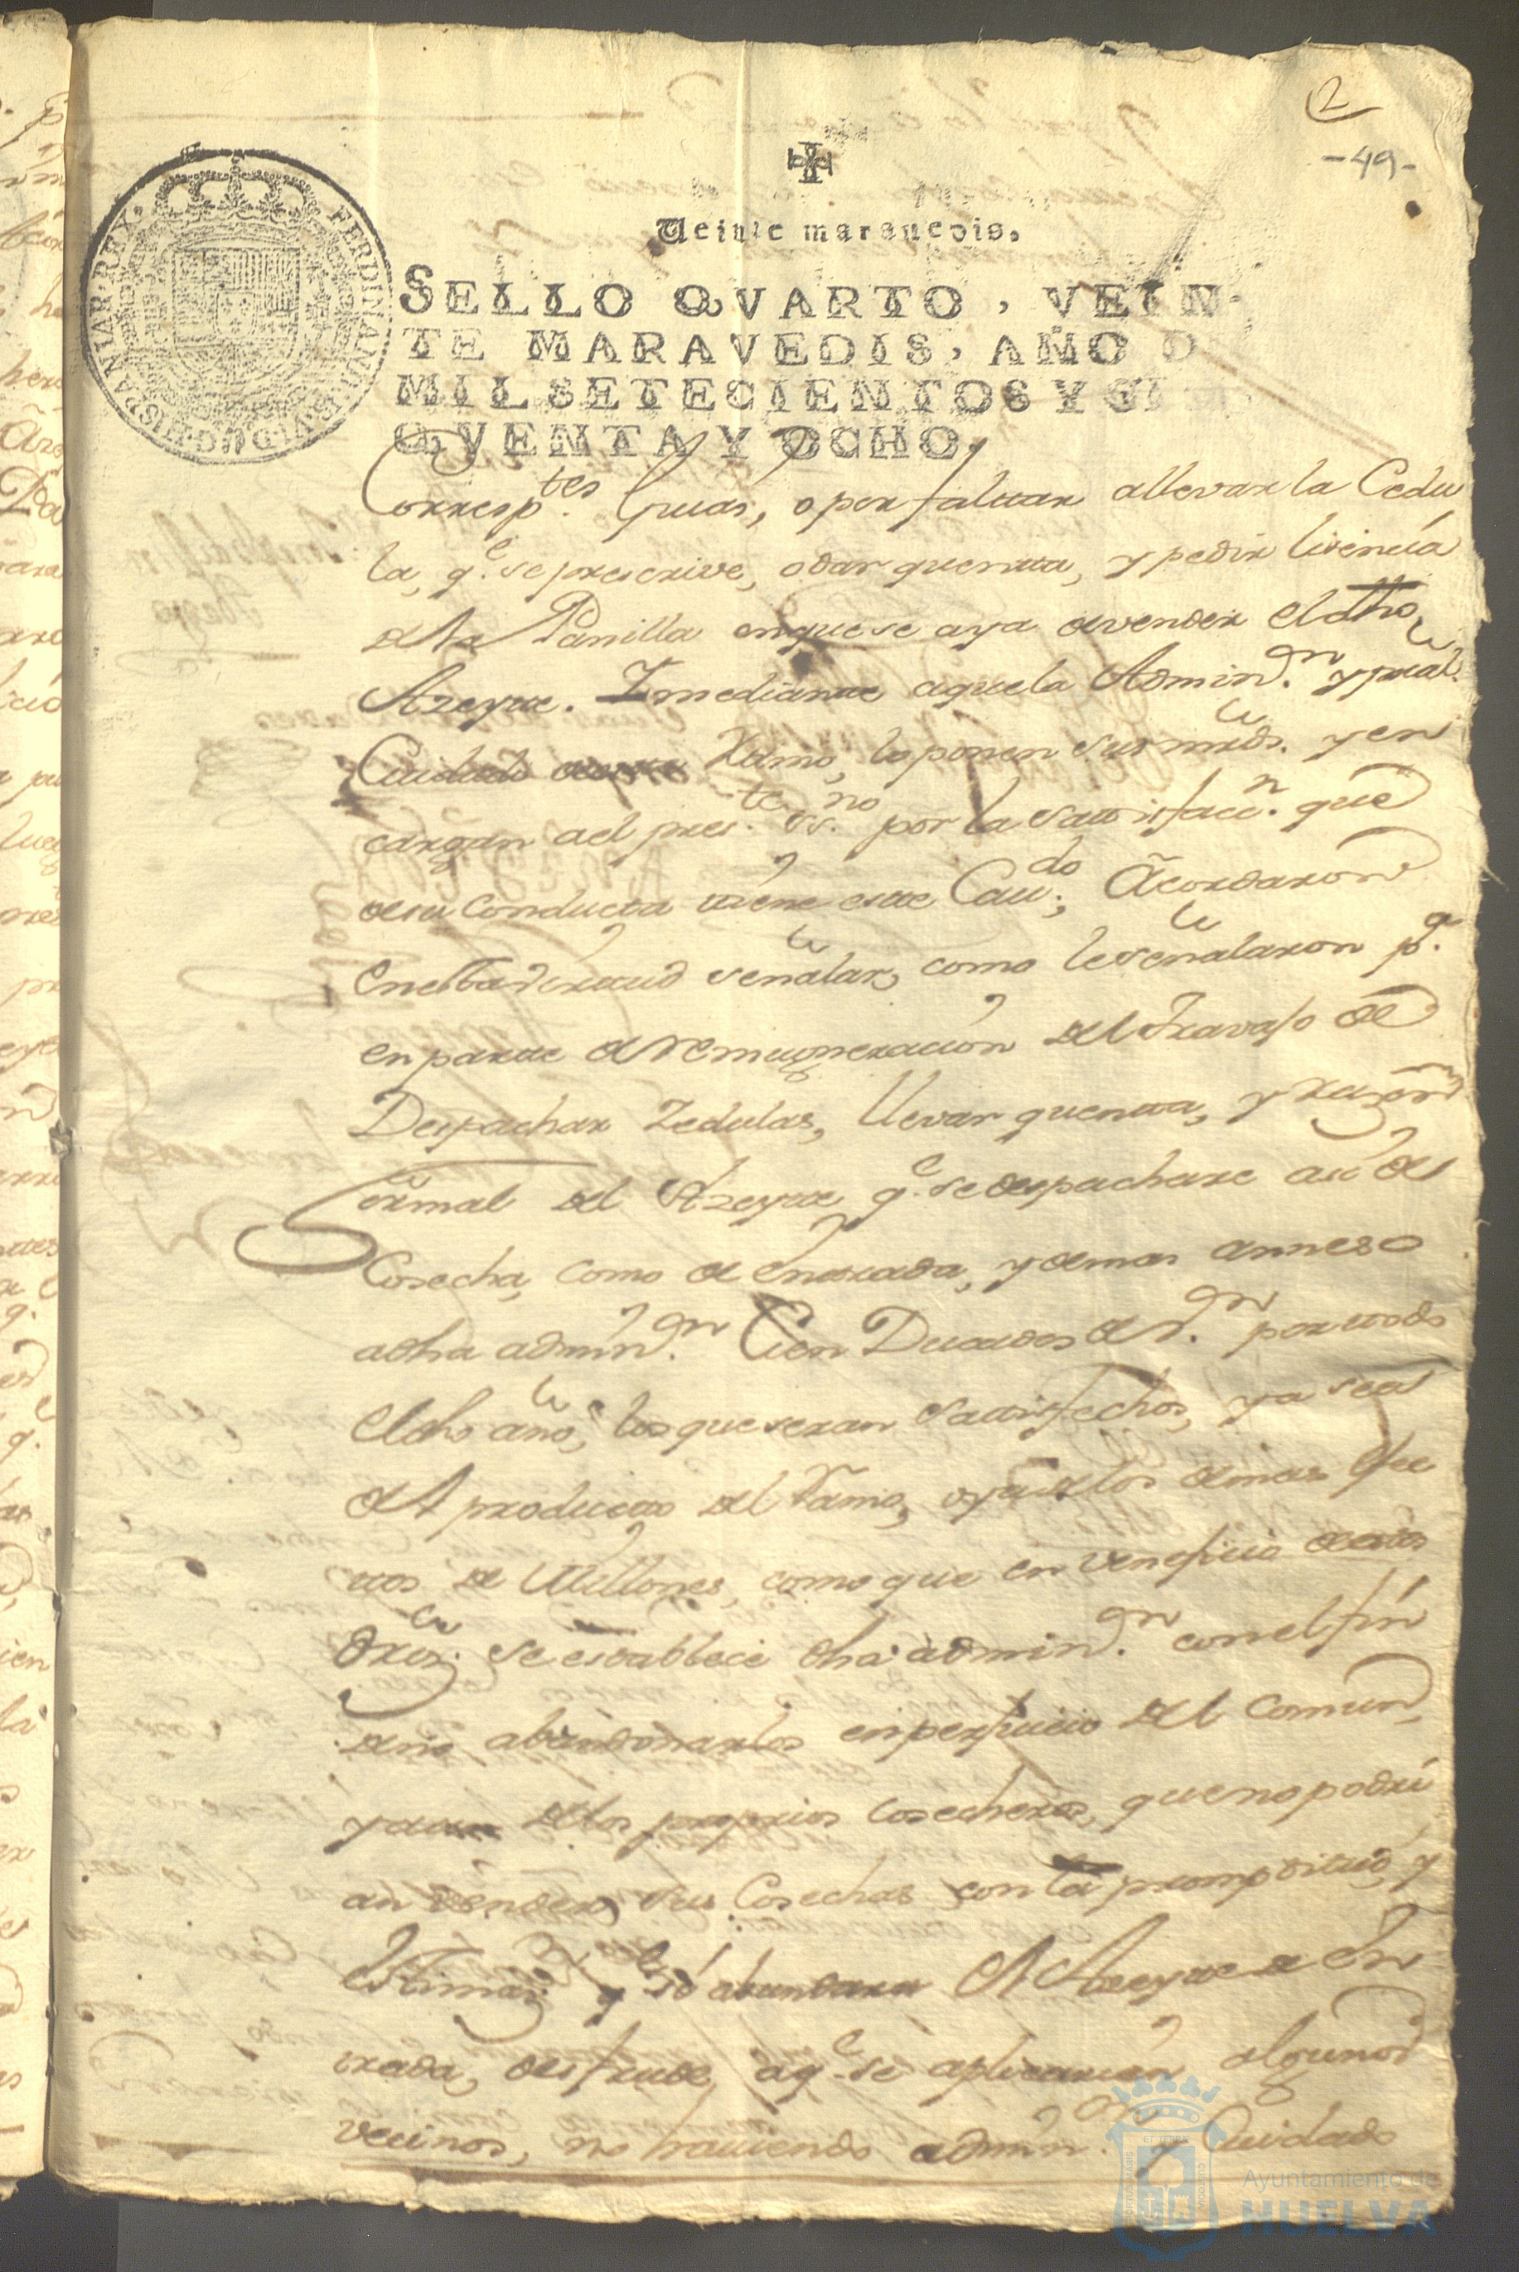 2
-49-
Veinte maravedis.
SELLO QVARTO, VEIN
TE MARAVEDIS, AÑO D
MIL SETECIENTOS Y CIN
QVENTA Y OCHO.
FERDINANDUS VI D G HISPANIAR REX
Corresp.tes Guias, o por faltar allevar la Cedu
la, q.e se prescrive, o dar quenta, y pedir lisencia
de la Panilla en que se aya de vender el dho
Azeyte. I mediante aque la Admin.on y pral.
Cuidado de este Ramo, lo ponen sus mrds. y en
cargan a el pres.te ss.no por la satisfacc.n que
de su conducta tiene este Cav.do, Acordaron
en esta virtud señalar, como le señalaron p.a
en parte de remuneracion del travajo de
Despachar Zedulas, llevar quenta, y razon
formal del Azeyte q.e se despachare asi de
Cosecha, como de entrada, y demas annexo
a dha admin.on Cien Ducados de v.on por todo
el dho año, los que seran satisfechos, ya sea
del producto del Ramo, o ya de los demas efec
tos de Millones, como que en veneficio de estos
dros. se establece dha admin.on con el fin
de no abandonarlos en perjuicio del comun,
y aun de los proprios cosecheros, que no podri
an vender sus Cosechas con la promptitud, y
estimaz.on y si abundara el Azeyte de en
trada, desfraude, a q.e se aplicarian algunos
vecinos, no haviendo admin.on y Cuidado
Ayuntamiento de
HUELVA